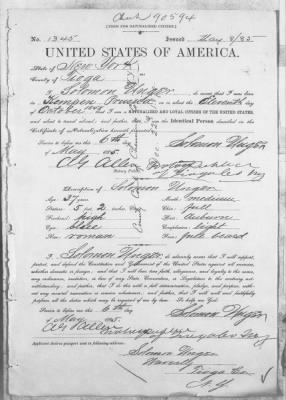 90594
[FORM FOR NATURALIZED CITIZEN.]
No. 1345 Issued May 8/85
UNITED STATES OF AMERICA.
State of New York
County of Tioga
I Solomon Unger, do swear that I was born
in Kempen Prussia, on or about the Eleventh day
of October; that I am a NATURALIZED AND LOYAL CITIZEN OF THE UNITED STATES,
and about to travel abroad; and further, that I am the Identical Person described in the
Certificate of Naturalization herewith presented.
Sworn to before me this 6th day Solomon Unger
of May 1885.
Notary Public
Description of Solomon Unger
Age: 37 years Mouth: medium
Stature: 5 feet 2 inches Chin: full
Forehead: high Hair: Auburn
Eyes: blue Complexion: light
Nose: roman Face: full beard
I, Solomon Unger, do solemnly swear that I will support,
protect, and defend the Constitution and Government of the United States against all enemies,
whether domestic or foreign; and that I will bear true faith, allegiance, and loyalty to the same,
any ordinance, resolution, or law of any State, Convention, or Legislature to the contrary not-
withstanding; and further, that I do this with a full determination, pledge, and purpose, with-
out any mental reservation or evasion whatsoever; and further, that I will well and faithfully
perform all the duties which may be required of me by law. So help me God.
Sworn to before me this 6th day Solomon Unger
of May 1885.
Applicant desires passport sent to following address:
Solomon Unger
Waverly
Tioga Co
N.Y.